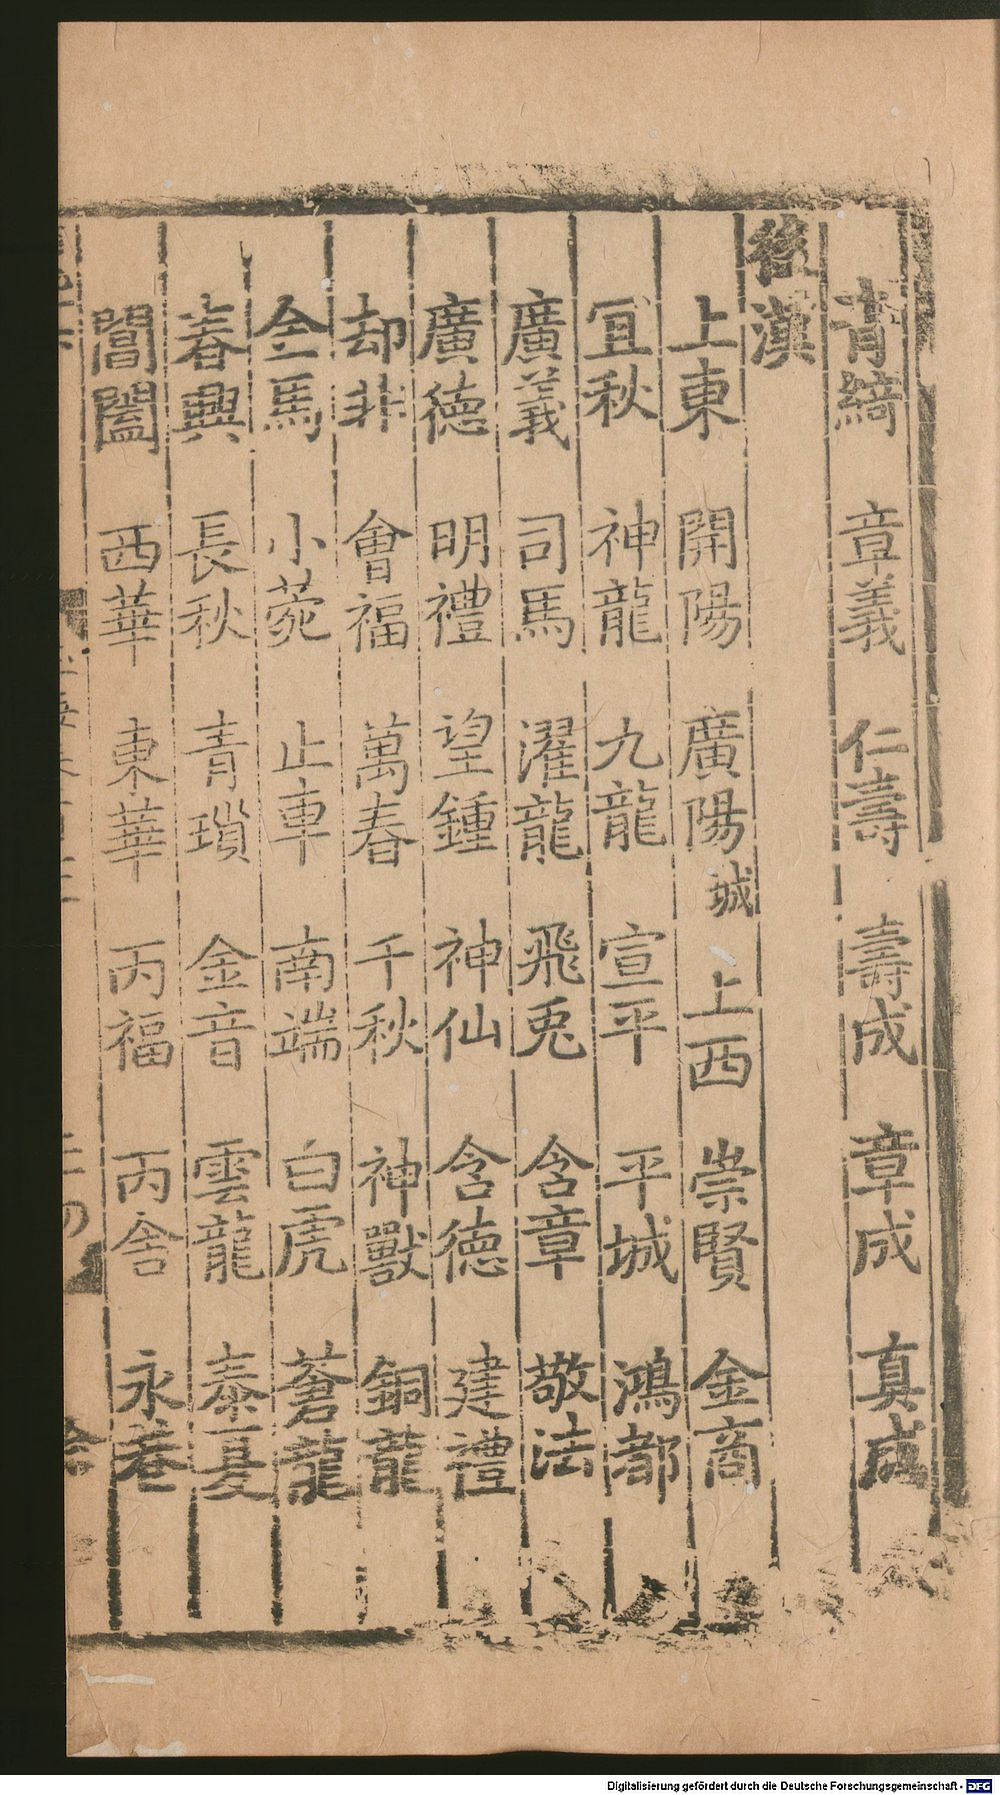 青綺 章義 仁壽 壽成 章成 真成
後漢
上東 開陽 廣陽城 上西 崇賢 金商
宜秋 神龍 九龍 宣平 平城 鴻都
廣義 司馬 濯龍 飛兎 含章 敬法
廣德 明禮 望鍾 神仙 含德 建禮
却非 會福 萬春 千秋 神獸 銅龍
金馬 小菀 止車 南端 白虎 蒼龍
春興 長秋 青瑣 金音 雲龍 泰夏
閶闔 西華 東華 丙福 丙舍 永巷
Digitalisierung gefördert durch die Deutsche Forschungsgemeinschaft - DFG